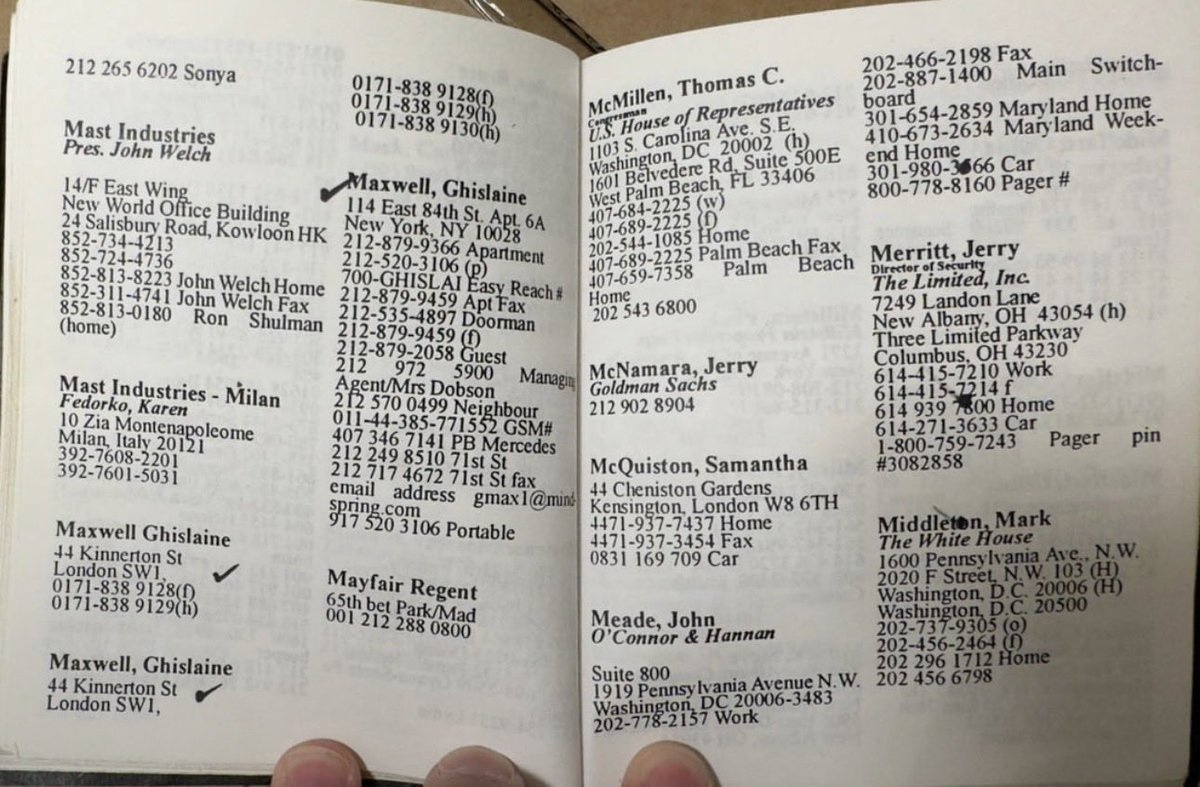 212 265 6202 Sonya
Mast Industries
Pres. John Welch
14/F East Wing
New World Office Building
24 Salisbury Road, Kowloon HK
852-734-4213
852-724-4736
852-813-8223 John Welch Home
852-311-4741 John Welch Fax
852-813-0180 Ron Shulman
(home)
Mast Industries - Milan
Fedorko, Karen
10 Zia Montenapoleome
Milan, Italy 20121
392-7608-2201
392-7601-5031
Maxwell Ghislaine
44 Kinnerton St
London SW1,
0171-838 9128(f)
0171-838 9129(h)
Maxwell, Ghislaine
44 Kinnerton St
London SW1,
0171-838 9128(f)
0171-838 9129(h)
0171-838 9130(h)
Maxwell, Ghislaine
114 East 84th St. Apt. 6A
New York, NY 10028
212-879-9366 Apartment
212-520-3106 (p)
700-GHISLAI Easy Reach #
212-879-9459 Apt Fax
212-535-4897 Doorman
212-879-9459 (f)
212-879-2058 Guest
212 972 5900 Managing
Agent/Mrs Dobson
212 570 0499 Neighbour
011-44-385-771552 GSM#
407 346 7141 PB Mercedes
212 249 8510 71st St
212 717 4672 71st St fax
email address gmax1@mind-
spring.com
917 520 3106 Portable
Mayfair Regent
65th bet Park/Mad
001 212 288 0800
McMillen, Thomas C.
Congressman
U.S. House of Representatives
1103 S. Carolina Ave. S.E.
Washington, DC 20002 (h)
1601 Belvedere Rd, Suite 500E
West Palm Beach, FL 33406
407-684-2225 (w)
407-689-2225 (f)
202-544-1085 Home
407-689-2225 Palm Beach Fax
407-659-7358 Palm Beach
Home
202 543 6800
McNamara, Jerry
Goldman Sachs
212 902 8904
McQuiston, Samantha
44 Cheniston Gardens
Kensington, London W8 6TH
4471-937-7437 Home
4471-937-3454 Fax
0831 169 709 Car
Meade, John
O'Connor & Hannan
Suite 800
1919 Pennsylvania Avenue N.W.
Washington, DC 20006-3483
202-778-2157 Work
202-466-2198 Fax
202-887-1400 Main Switch-
board
301-654-2859 Maryland Home
410-673-2634 Maryland Week-
end Home
Car
800-778-8160 Pager #
Merritt, Jerry
Director of Security
The Limited, Inc.
7249 Landon Lane
New Albany, OH 43054 (h)
Three Limited Parkway
Columbus, OH 43230
614-415-7210 Work
614-415-7214 f
614 939 Home
614-271-3633 Car
1-800-759-7243 Pager pin
#3082858
Middleton, Mark
The White House
1600 Pennsylvania Ave., N.W.
2020 F Street, N.W. 103 (H)
Washington, D.C. 20006 (H)
Washington, D.C. 20500
202-737-9305 (o)
202-456-2464 (f)
202 296 1712 Home
202 456 6798